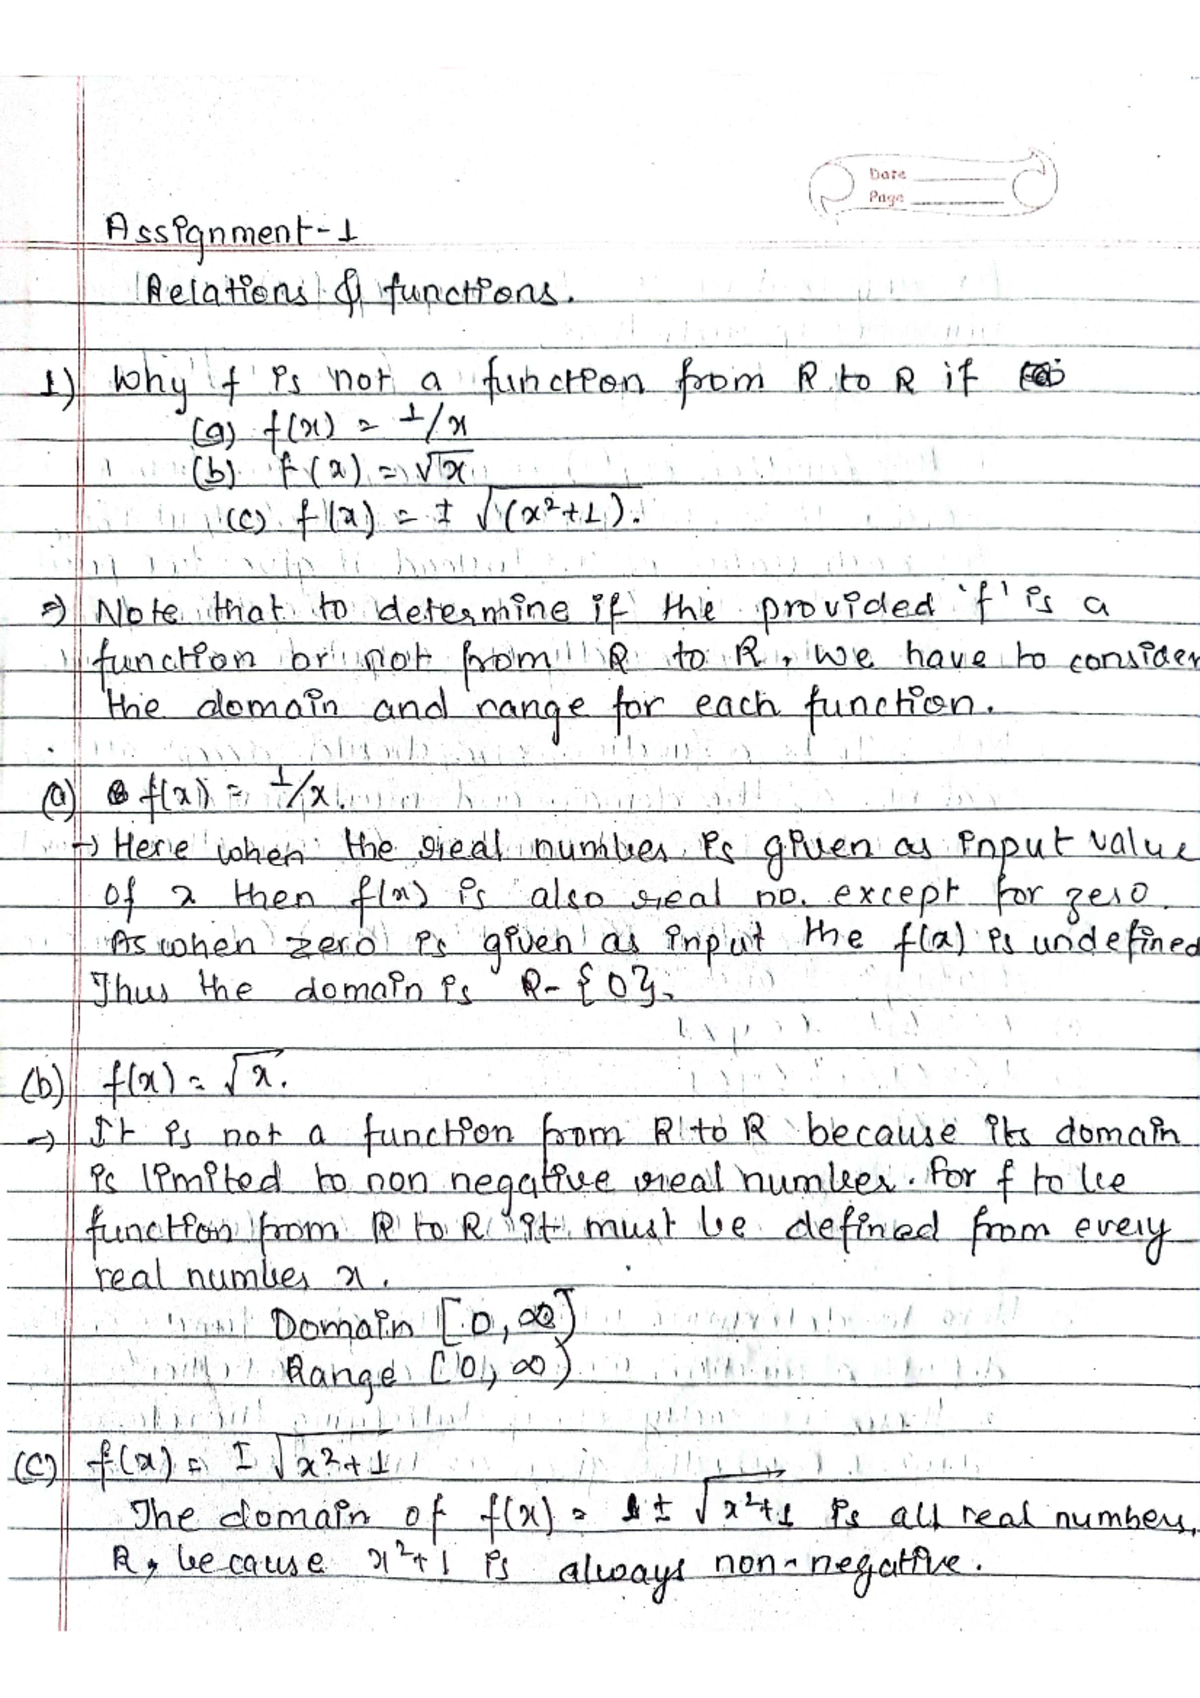 Date
Page
Assignment-1
Relations & functions.
1) Why f is not a function from R to R if
(a) f(x) = 1/x
(b) f(x) = √x
(c) f(x) = ± √(x²+1).
⇒ Note that to determine if the provided 'f' is a
function or not from R to R, we have to consider
the domain and range for each function.
(a) f(x) = 1/x.
→ Here when the real number is given as input value
of x then f(x) is also real no. except for zero.
As when zero is given as input the f(x) is undefined
Thus the domain is R- {0}.
(b) f(x) = √x.
→ It is not a function from R to R because its domain
is limited to non negative real number. For f to be
function from R to R it must be defined from every
real number x.
Domain [0, ∞)
Range [0, ∞)
(c) f(x) = ± √x²+1
The domain of f(x) = ± √x²+1 is all real numbers,
R, because x²+1 is always non-negative.